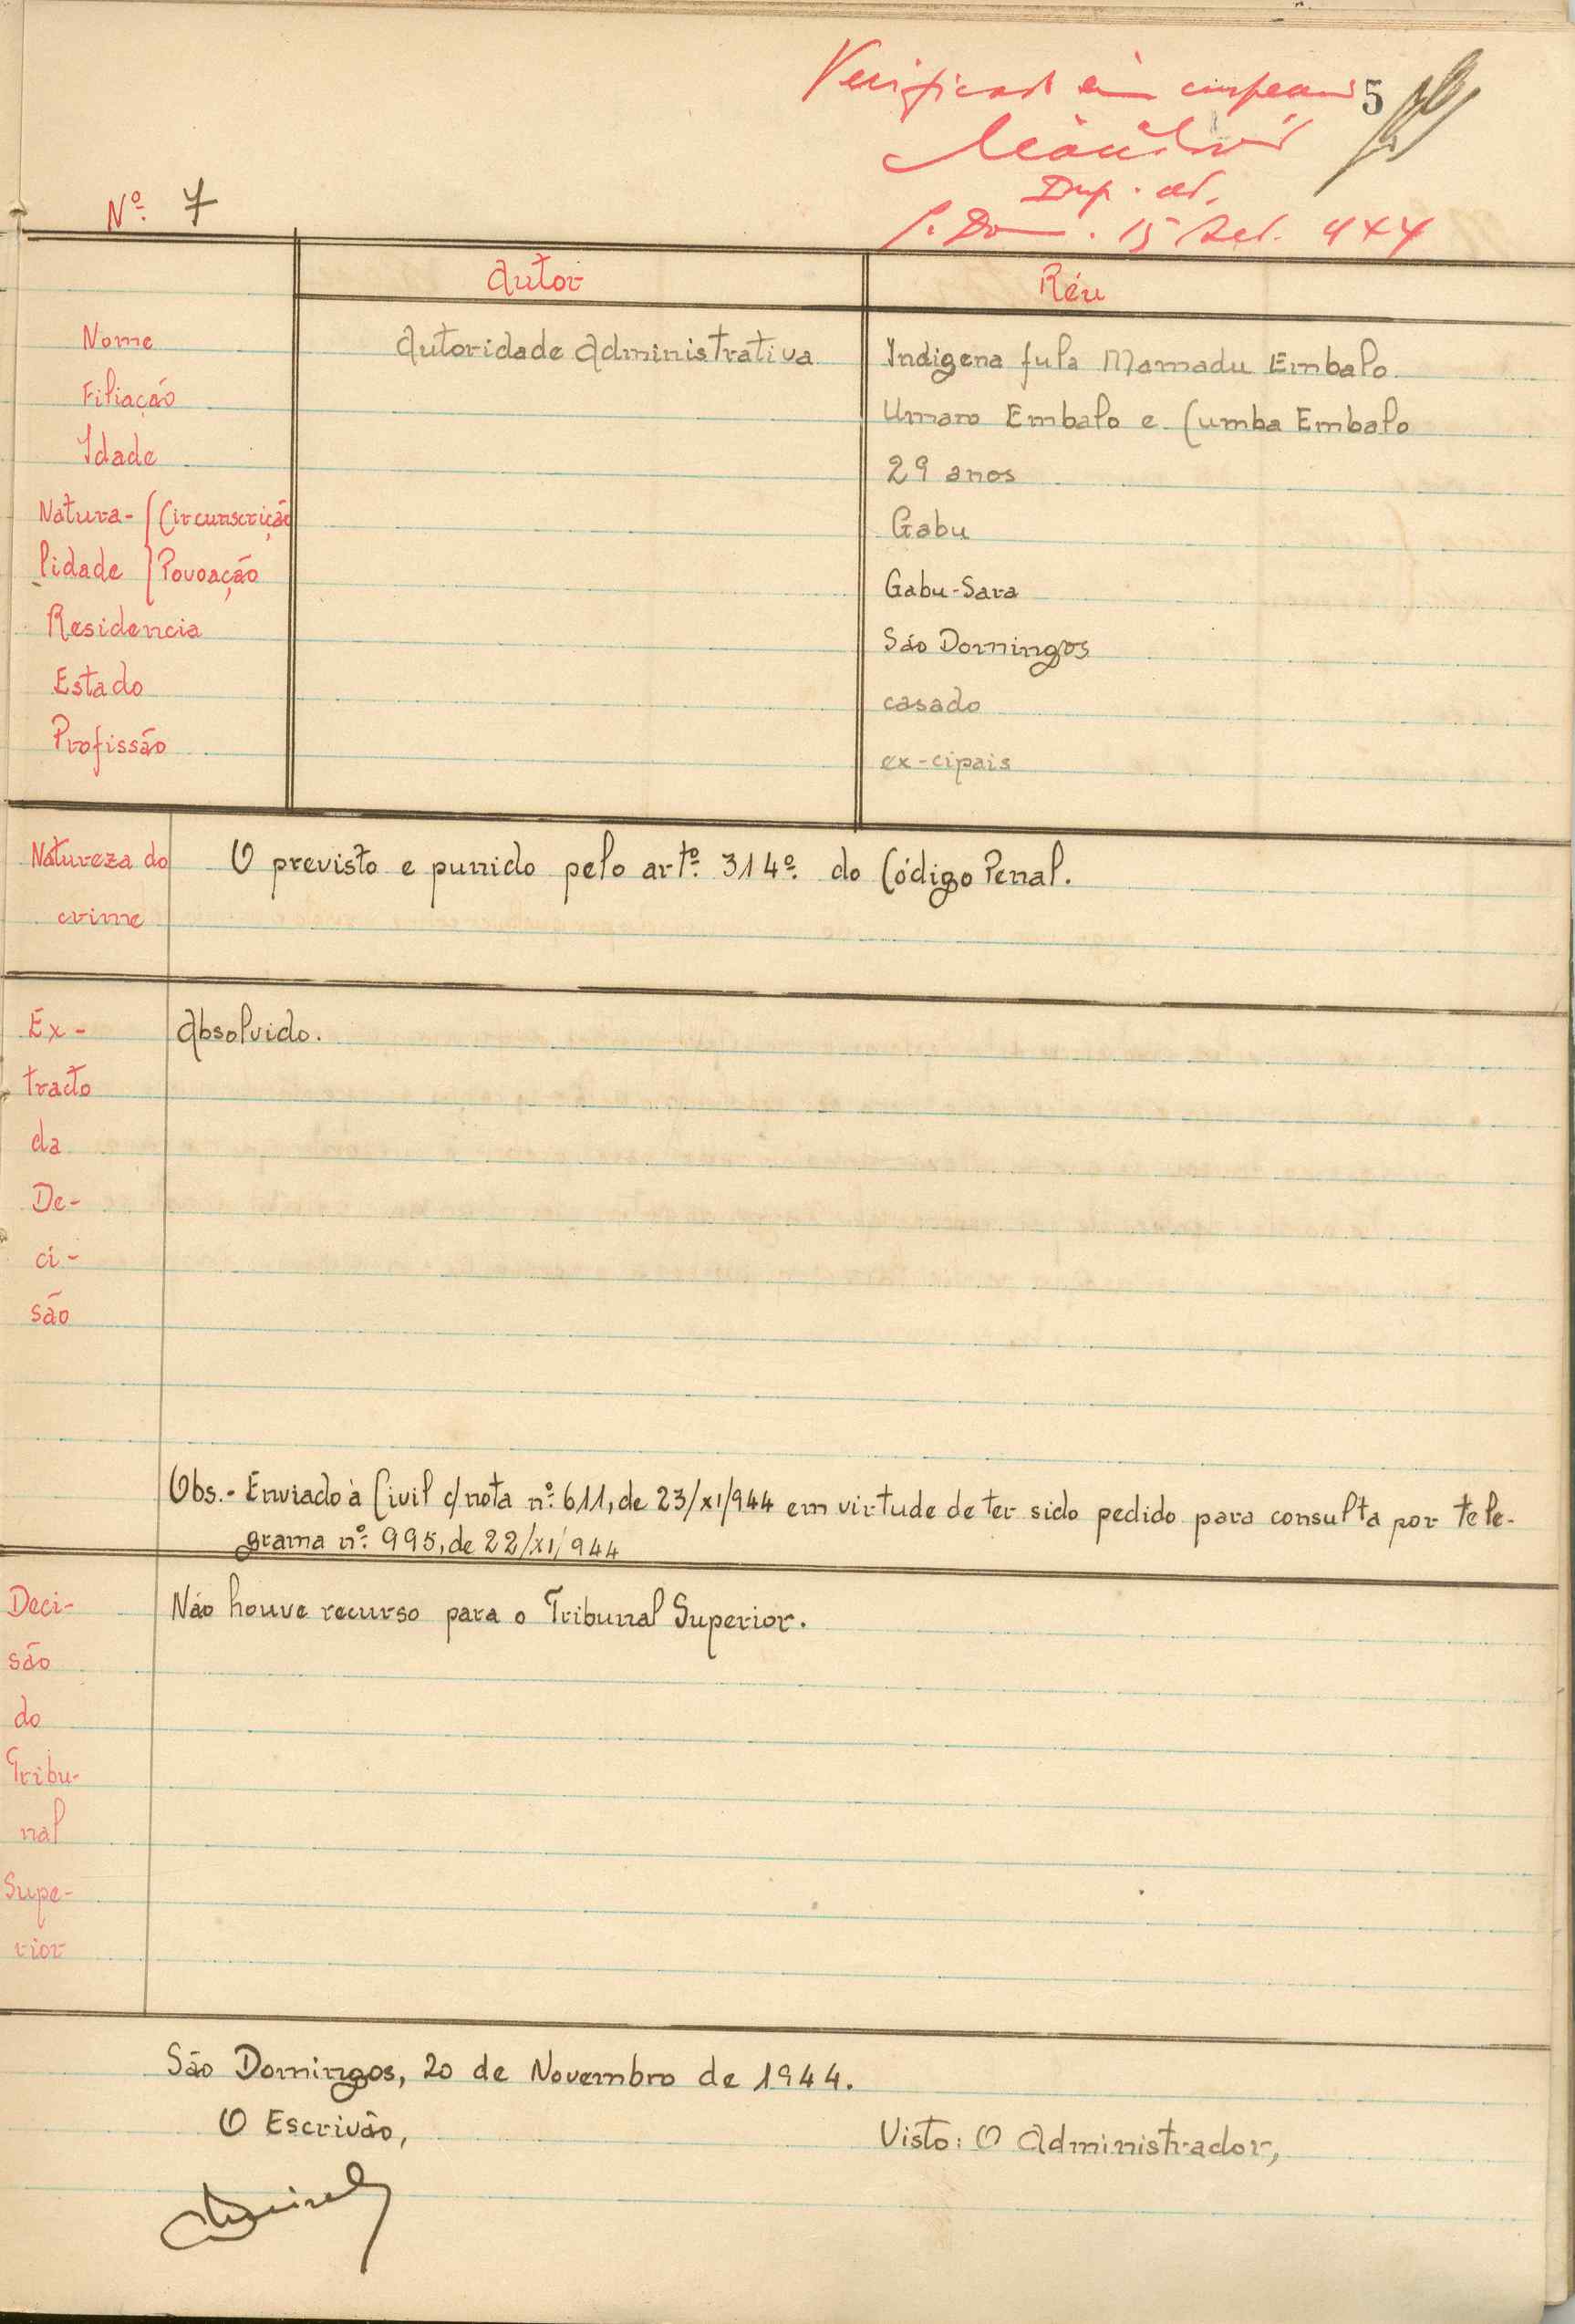 Verificado em
5
Dep. at.
S. Dom. 15 Set. 944
Nº. 7
Autor
Réu
Nome Autoridade Administrativa Indigena fula Mamadu Embalo
Filiação Umaro Embalo e Cumba Embalo
Idade 29 anos
Natura- Circunscrição Gabu
lidade Povoação Gabu-Sara
Residencia São Domingos
Estado casado
Profissão ex-cipais
Natureza do O previsto e punido pelo artº. 314º. do Código Penal.
crime
Ex- Absolvido.
tracto
da
De-
ci-
são
Obs.- Enviado à Civil c/nota nº. 611, de 23/XI/944 em virtude de ter sido pedido para consulta por tele-
grama nº. 995, de 22/XI/944
Deci- Não houve recurso para o Tribunal Superior.
são
do
Tribu-
nal
Supe-
rior
São Domingos, 20 de Novembro de 1944.
O Escrivão,
Visto: O Administrador,